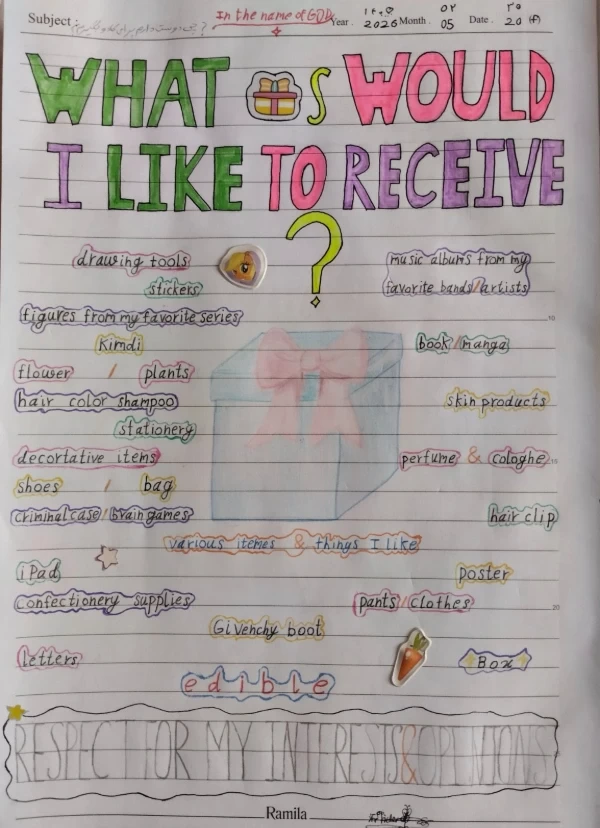 Subject:
In the name of GOD
Year . ۱۴۰۵ 2026 Month . ۰۲ 05 Date . ۳۰ 20 (4)
WHAT S WOULD
I LIKE TO RECEIVE
?
drawing tools
music albums from my
stickers
favorite bands/artists
figures from my favorite series
10
Kimdi
book/manga
flower / plants
hair color shampoo
skin products
stationery
decortative items
perfume & cologhe
shoes / bag
criminal case/brain games
hair clip
various itemes & things I like
iPad
poster
confectionery supplies
pants/clothes
20
Givenchy boot
letters
Box
edible
RESPECT FOR MY INTERESTS & OPENIONS
Ramila